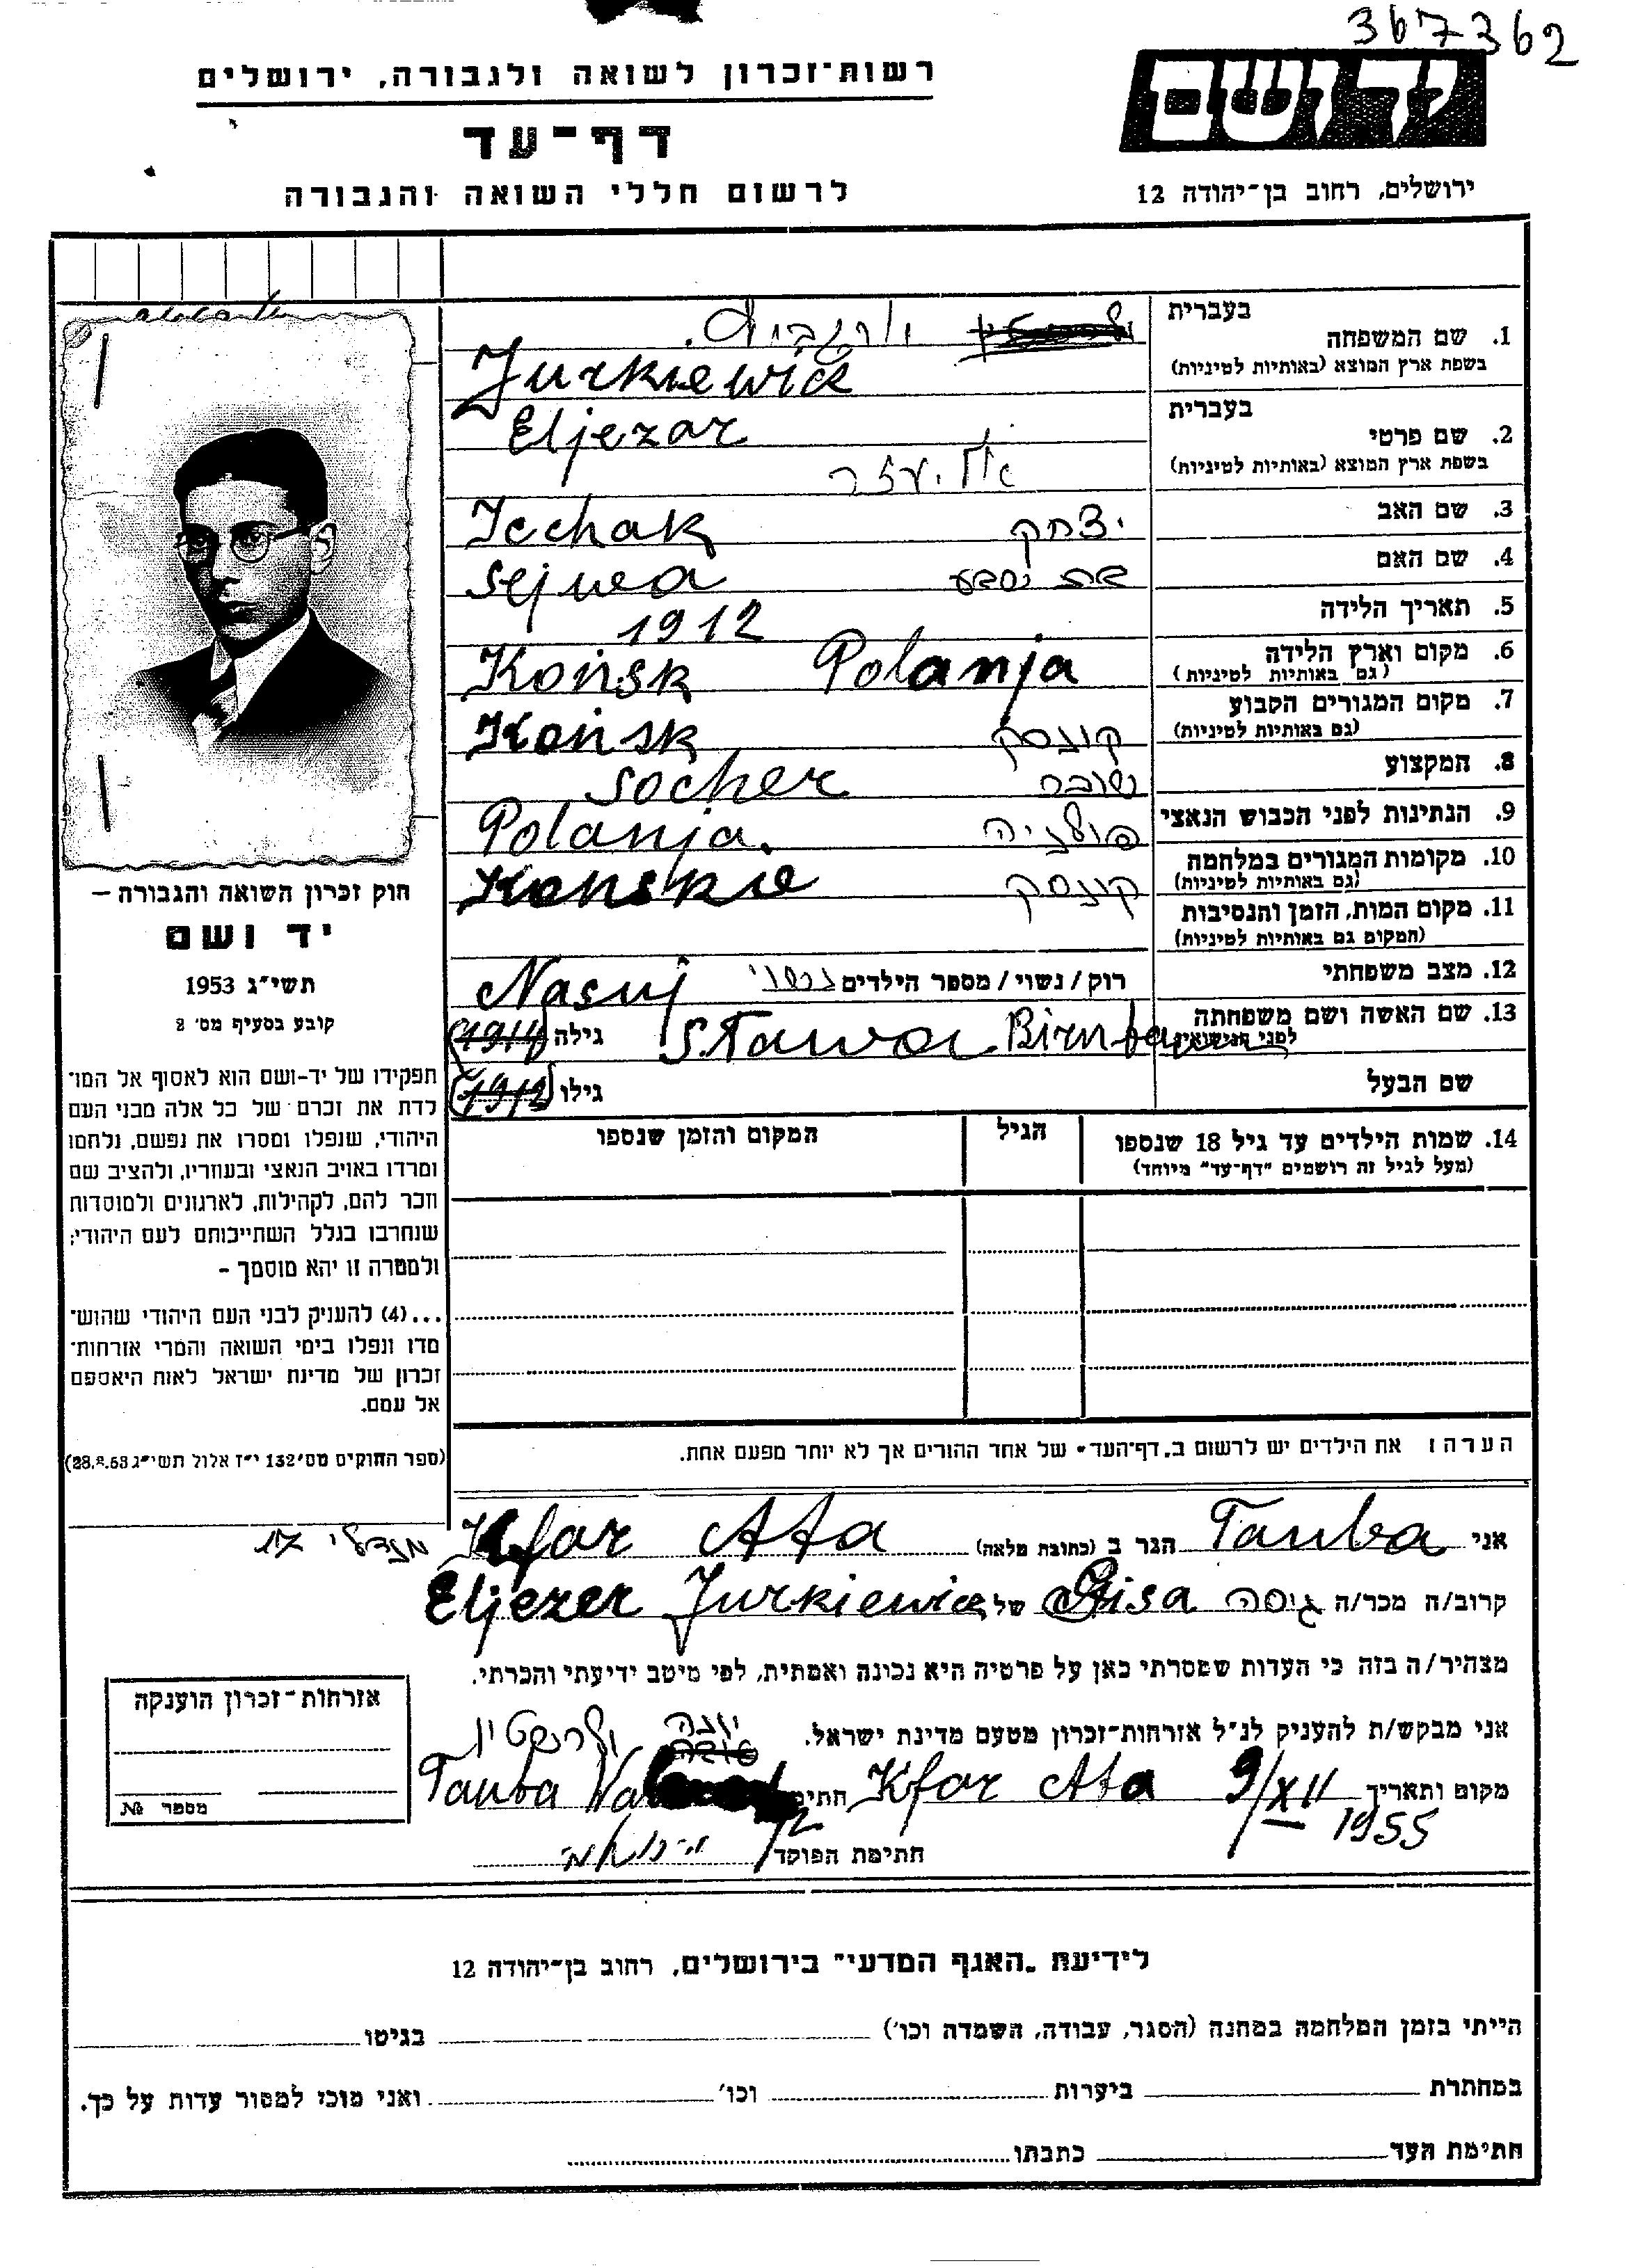 367362
רשות־זכרון לשואה ולגבורה, ירושלים
יד ושם
דף־עד
לרשום חללי השואה והגבורה
ירושלים, רחוב בן־יהודה 12
בעברית
1. שם המשפחה
(בשפת ארץ המוצא (באותיות לטיניות
יורקביץ.
Jurkiewicz
בעברית
2. שם פרטי
(בשפת ארץ המוצא (באותיות לטיניות
Eljezar
אליעזר
3. שם האב
יצחק Icchak
4. שם האם
בת שבע Sejwea
5. תאריך הלידה
1912
6. מקום וארץ הלידה
(גם באותיות לטיניות)
Końsk Polanja
7. מקום המגורים הקבוע
(גם באותיות לטיניות)
קונסק Końsk
8. המקצוע
סוחר Socher
9. הנתינות לפני הכבוש הנאצי
פולניה Polanja.
10. מקומות המגורים במלחמה
(גם באותיות לטיניות)
קונסק Konskie
11. מקום המות, הזמן והנסיבות
(המקום גם באותיות לטיניות)
12. מצב משפחתי
רוק / נשוי / מספר הילדים נשוי Nasuj
13. שם האשה ושם משפחתה
לפני הנישואין
Birnbaum גילה 1914
שם הבעל
גילו 1912
14. שמות הילדים עד גיל 18 שנספו
(מעל לגיל זה רושמים "דף־עד" מיוחד)
הגיל
המקום והזמן שנספו
חוק זכרון השואה והגבורה –
יד ושם
תשי״ג 1953
קובע בסעיף מס׳ 2
תפקידו של יד-ושם הוא לאסוף אל המו־
לדת את זכרם של כל אלה מבני העם
היהודי, שנפלו ומסרו את נפשם, נלחמו
ומרדו באויב הנאצי ובעוזריו, ולהציב שם
וזכר להם, לקהילות, לארגונים ולמוסדות
שנחרבו בגלל השתייכותם לעם היהודי;
ולמטרה זו יהא מוסמך –
...(4) להעניק לבני העם היהודי שהוש־
מדו ונפלו בימי השואה והמרי אזרחות־
זכרון של מדינת ישראל לאות היאספם
אל עמם.
(ספר החוקים מס׳ 132 י״ז אלול תשי״ג 28.8.53)
הערה: את הילדים יש לרשום ב„דף־העד" של אחד ההורים אך לא יותר מפעם אחת.
אני Tauba הגר ב (כתובת מלאה) Kfar Ata
קרוב/ה מכר/ה גיסה Gisa של Eljezer Jurkiewicz
מצהיר/ה בזה כי העדות שמסרתי כאן על פרטיה היא נכונה ואמתית, לפי מיטב ידיעתי והכרתי.
אני מבקש/ת להעניק לנ״ל אזרחות־זכרון מטעם מדינת ישראל.
יונה
מקום ותאריך Kfar Ata 9/XII 1955 חתימה Tauba
חתימת הפוקד
אזרחות־זכרון הוענקה
מספר №
לידיעת „האגף המדעי" בירושלים, רחוב בן־יהודה 12
הייתי בזמן המלחמה במחנה (הסגר, עבודה, השמדה וכו׳) בגיטו
במחתרת ביערות וכו׳ ואני מוכן למסור עדות על כך.
חתימת העד כתבתו